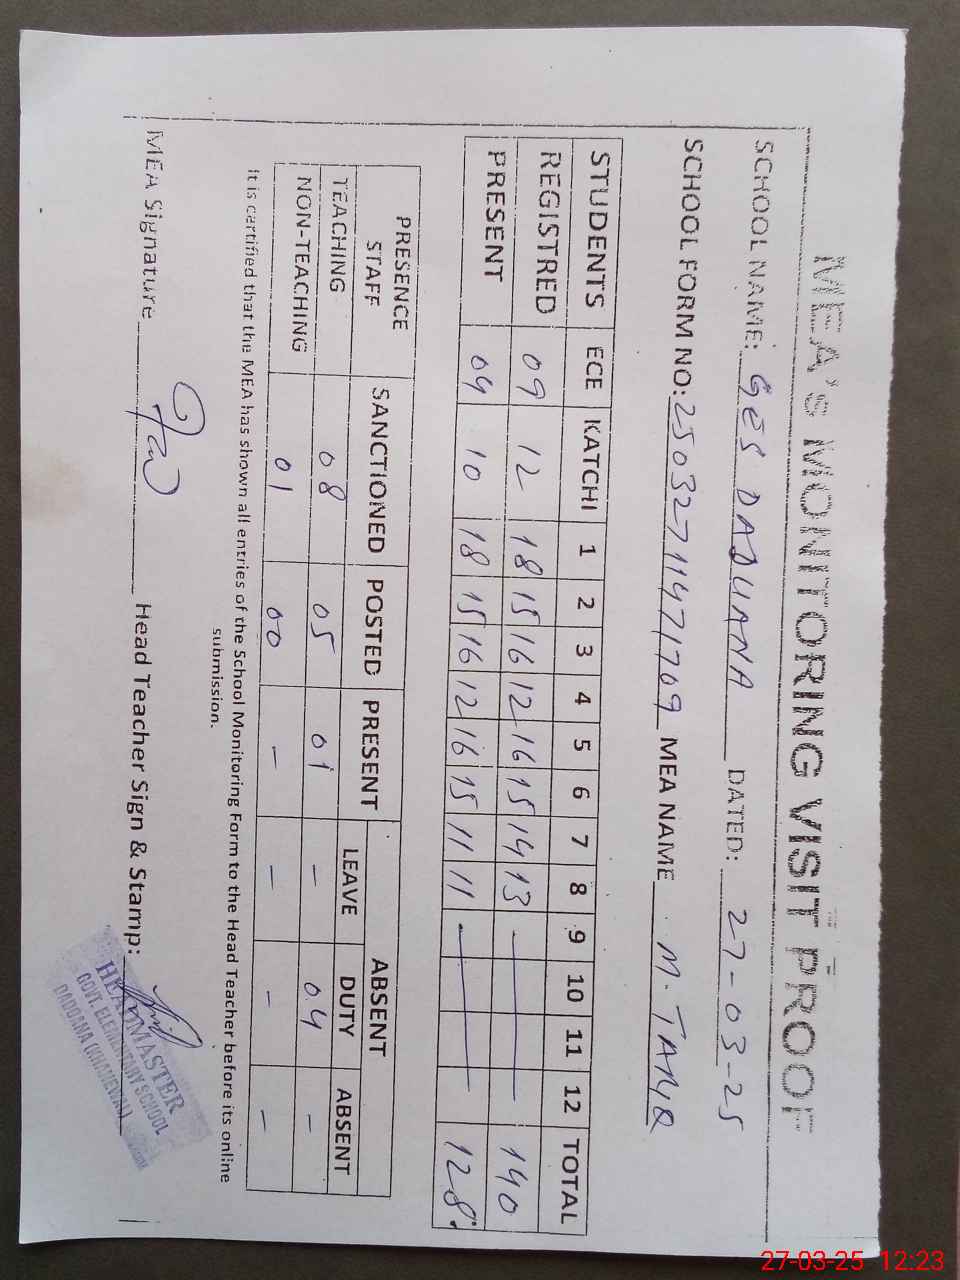 MEA'S MONITORING VISIT PROOF
SCHOOL NAME: GES DADUANA DATED: 27-03-25
SCHOOL FORM NO: 25032711471769 MEA NAME M. TARIQ
STUDENTS ECE KATCHI 1 2 3 4 5 6 7 8 9 10 11 12 TOTAL
REGISTRED 09 12 18 15 16 12 16 15 14 13 — 140
PRESENT 09 10 18 15 16 12 16 15 11 11 — 128.
PRESENCE STAFF SANCTIONED POSTED PRESENT ABSENT
LEAVE DUTY ABSENT
TEACHING 08 05 01 – 04 –
NON-TEACHING 01 00 – – – –
It is certified that the MEA has shown all entries of the School Monitoring Form to the Head Teacher before its online
submission.
MEA Signature Head Teacher Sign & Stamp:
HEADMASTER
GOVT. ELEMENTARY SCHOOL
DADOANA (KHANEWAL)
27-03-25 12:23